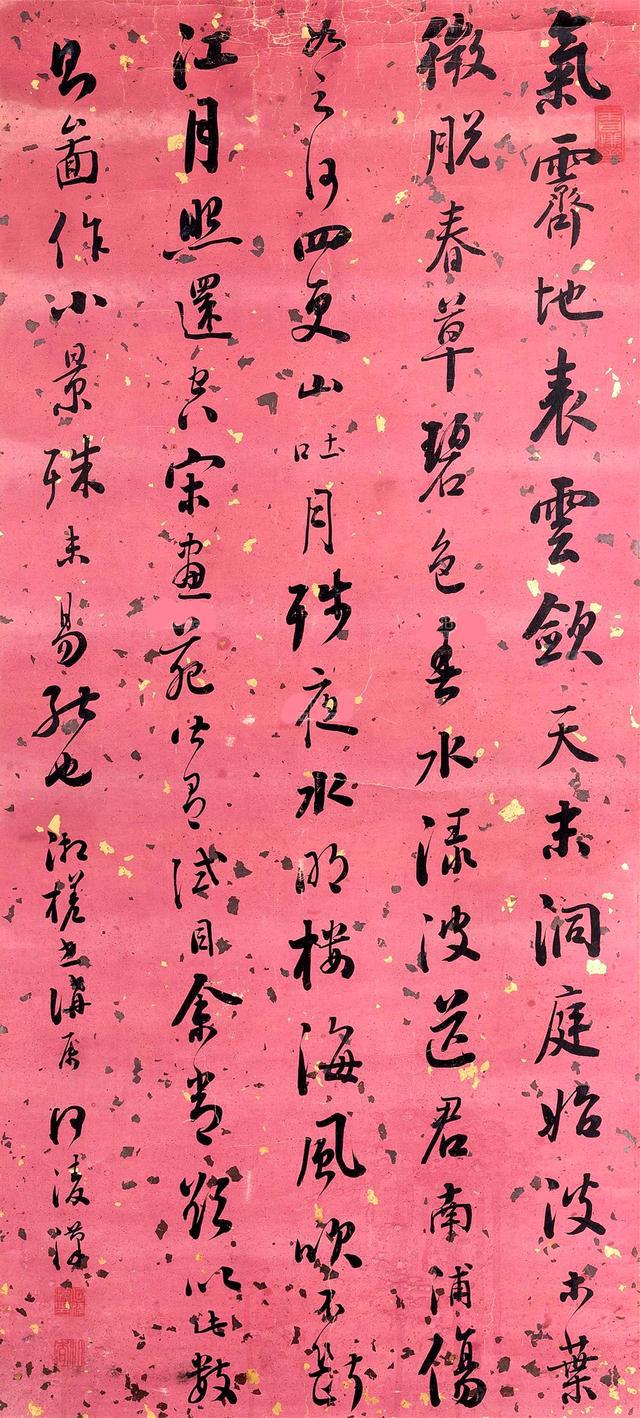 氣霽地表雲斂天末洞庭始波木葉
微脫春草碧色春水淥波送君南浦傷
如之何四更山吐月殘夜水明樓海風吹不斷
江月照還空宋畫苑皆有試目余嘗欲以此數
啚作小景殊未易能也 湘槎世講屬 何淩漢